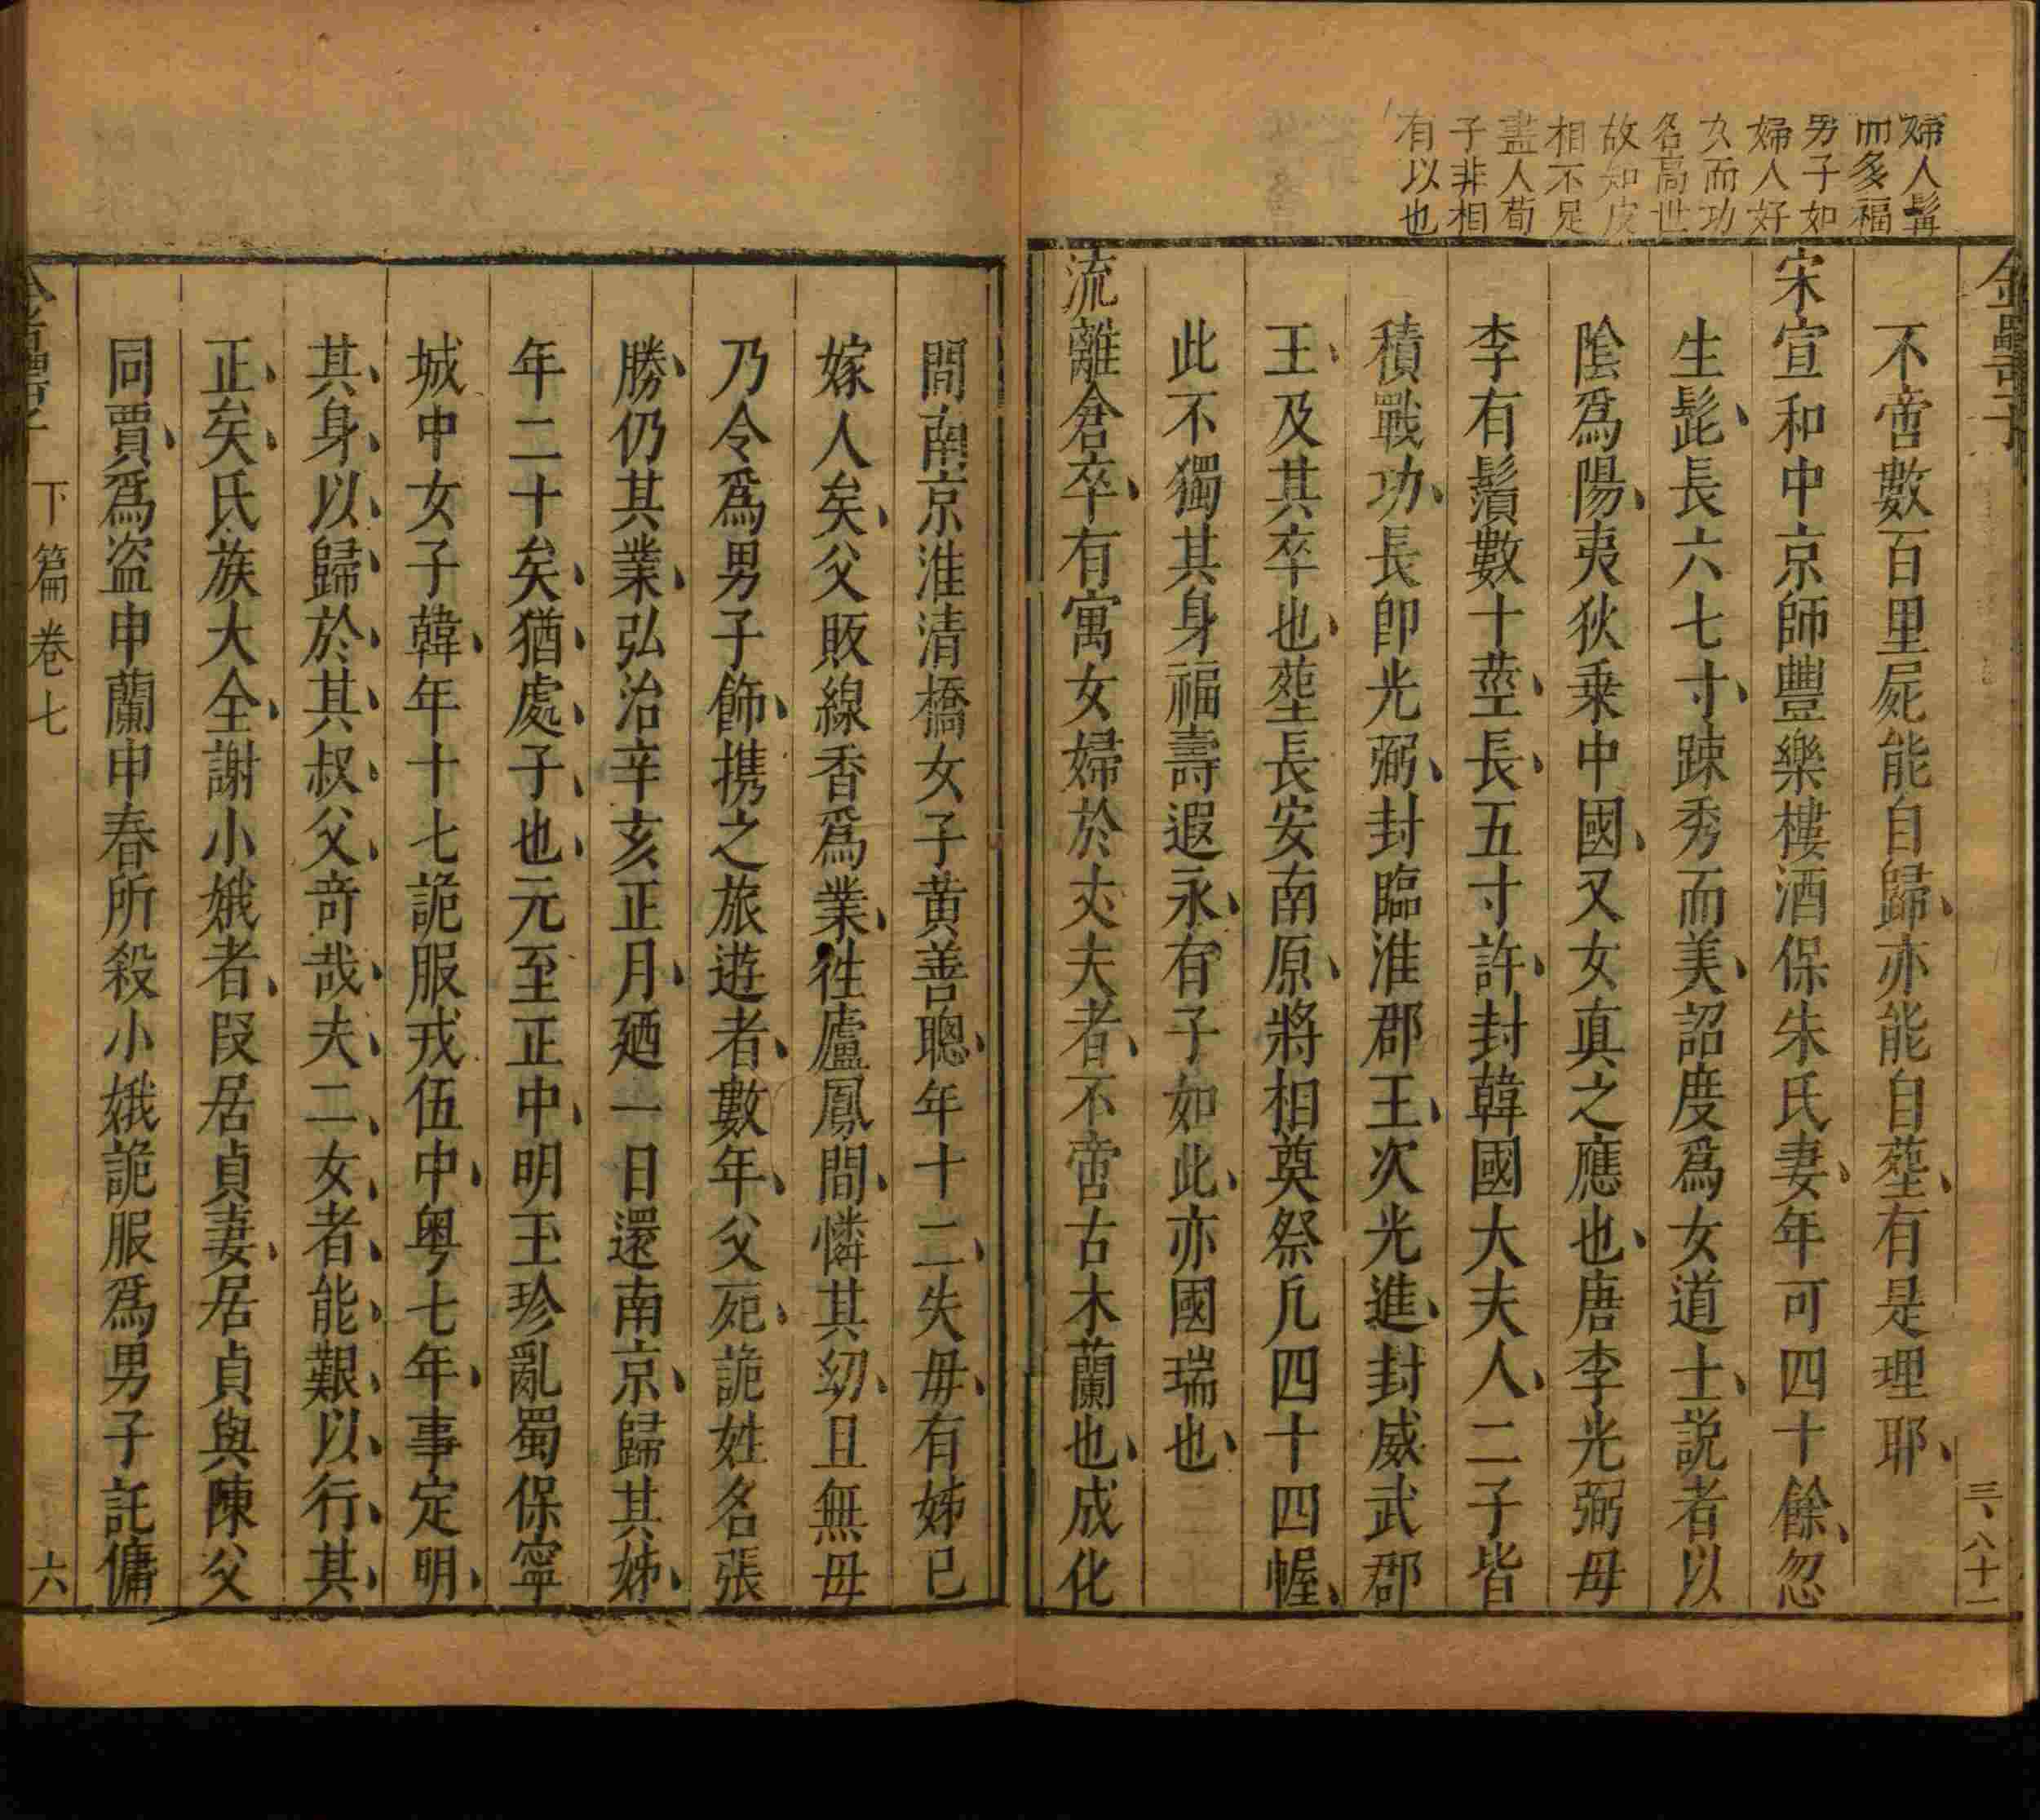 婦人髯
而多福
男子如
婦人好
女而功
名高世
故知皮
相不足
盡人荀
子非相
有以也
金罍子
三八十一
不啻數百里屍能自歸亦能自塟有是理耶
宋宣和中京師豐樂樓酒保朱氏妻年可四十餘忽
生髭長六七寸踈秀而美詔度爲女道士説者以
陰爲陽夷狄乗中國又女真之應也唐李光弼母
李有鬚數十莖長五寸許封韓國大夫人二子皆
積戰功長卽光弼封臨淮郡王次光進封威武郡
王及其卒也塟長安南原將相奠祭凢四十四幄
此不獨其身福壽遐永有子如此亦國瑞也
流離倉卒有寓女婦於丈夫者不啻古木蘭也成化
間南京淮清橋女子黄善聰年十二失母有姊已
嫁人矣父販線香爲業徃廬鳳間憐其幼且無母
乃令爲男子飾携之旅遊者數年父死詭姓名張
勝仍其業弘治辛亥正月廼一日還南京歸其姊
年二十矣猶處子也元至正中明玉珍亂蜀保寧
城中女子韓年十七詭服戎伍中粤七年事定明
其身以歸於其叔父竒哉夫二女者能艱以行其
正矣氏族大全謝小娥者叚居貞妻居貞與陳父
同賈爲盗申蘭申春所殺小娥詭服爲男子託傭
金罍子
下篇卷七
六